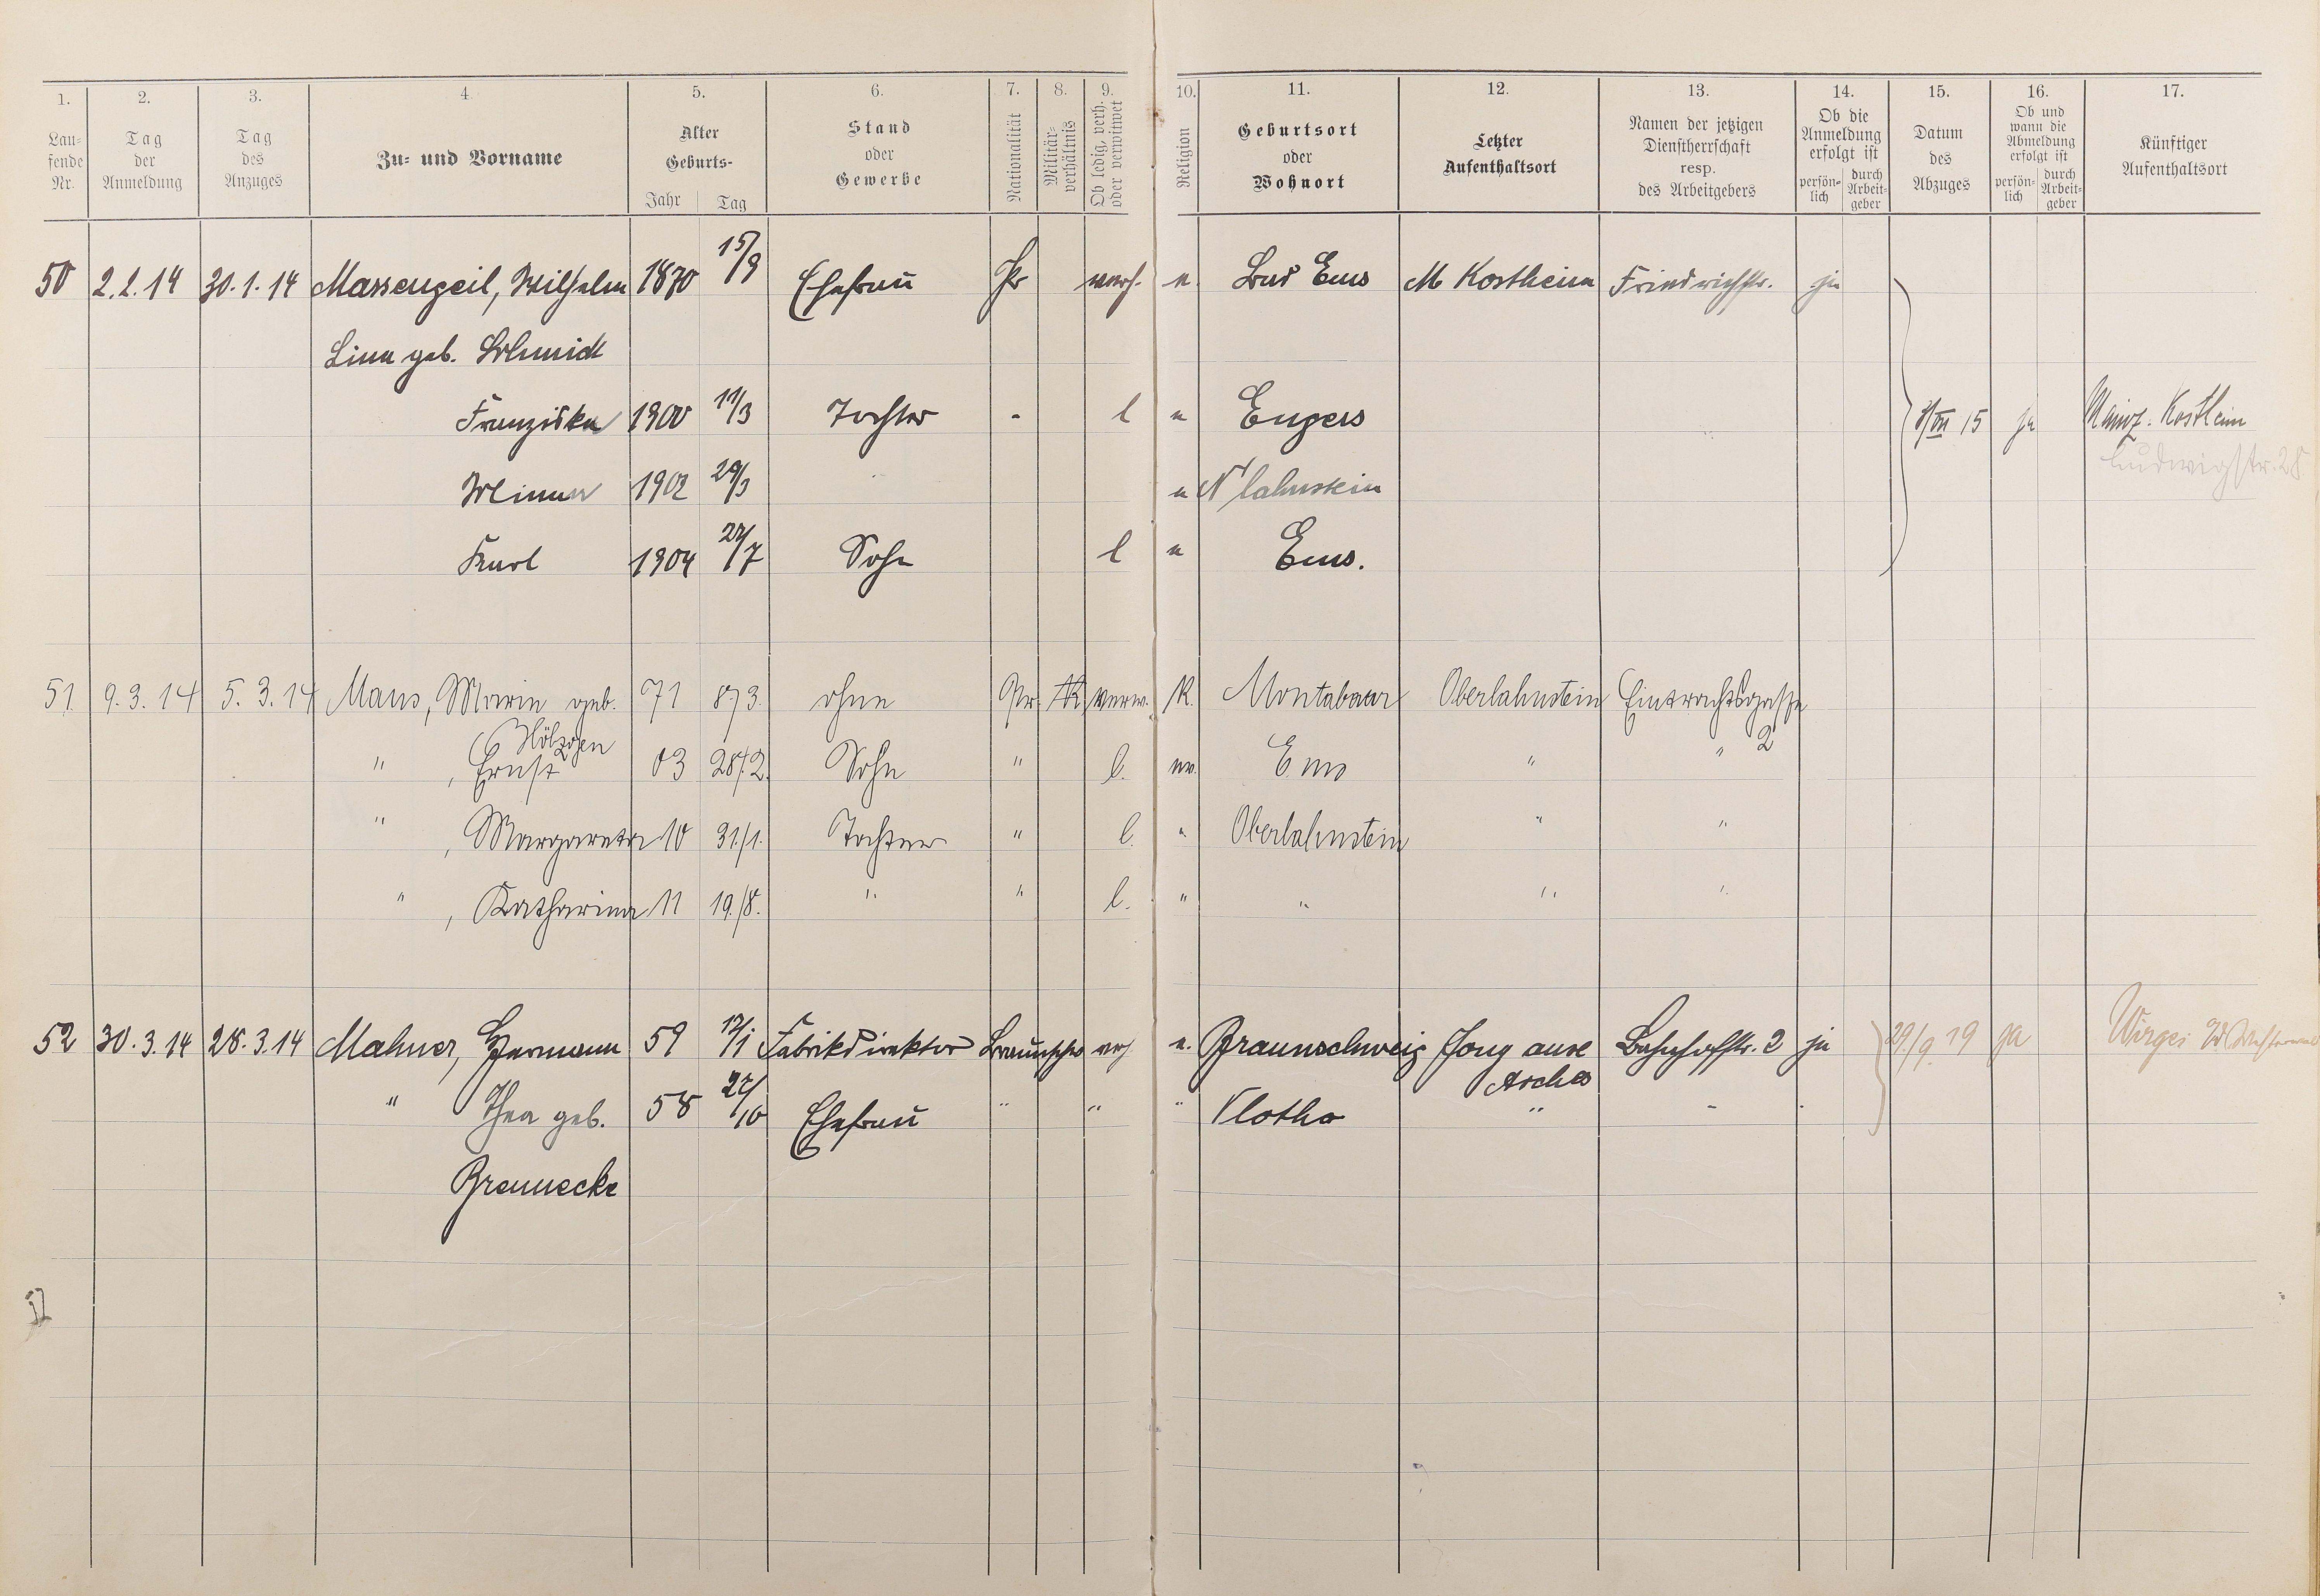 1. 2. 3. 4. 5. 6. 7. 8. 9. 10. 11. 12. 13. 14. 15. 16. 17.
Lau-fende Nr.
Tag der Anmeldung
Tag des Anzuges
Zu- und Vorname
Alter Geburts- Jahr Tag
Stand oder Gewerbe
Nationalität
Militär-verhältnis
Ob ledig, verh. oder verwitwet
Religion
Geburtsort oder Wohnort
Letzter Aufenthaltsort
Namen der jetzigen Dienstherrschaft resp. des Arbeitgebers
Ob die Anmeldung erfolgt ist persön-lich durch Arbeit-geber
Datum des Abzuges
Ob und wann die Abmeldung erfolgt ist persön-lich durch Arbeit-geber
Künftiger Aufenthaltsort
50 2.2.14 30.1.14 Massengeil, Wilhelm 1870 15/9 Ehefrau Pr verh. e. Bad Ems M Kostheim Friedrichstr. ja
Lina geb. Schmidt
Franziska 1900 11/3 Tochter - l " Engers 15 ja Mainz-Kostheim
Ludwigstr. 28
Minna 1902 29/3 " N'lahnstein
Karl 1904 27/7 Sohn l " Ems.
51. 9.3.14 5.3.14 Maus, Maria geb. 71 8/3. ohne Pr. verw. K. Montabaur Oberlahnstein Eintrachtsgasse
Hölzgen
" , Ernst 03 28/2. Sohn " l. Ems " " 2
" , Margareta 10 31./1. Tochter " l. " Oberlahnstein " "
" , Katharina 11 19./8. " " l. " " " "
52 30.3.14 28.3.14 Mahner, Hermann 59 17/1 Fabrikdirektor Braunschw verh e. Braunschweig Bahnhofstr. 2 ja 29/9. 19 ja Wirges
" Thea geb. 58 27/10 Ehefrau " " " Vlotho " -
Brennecke